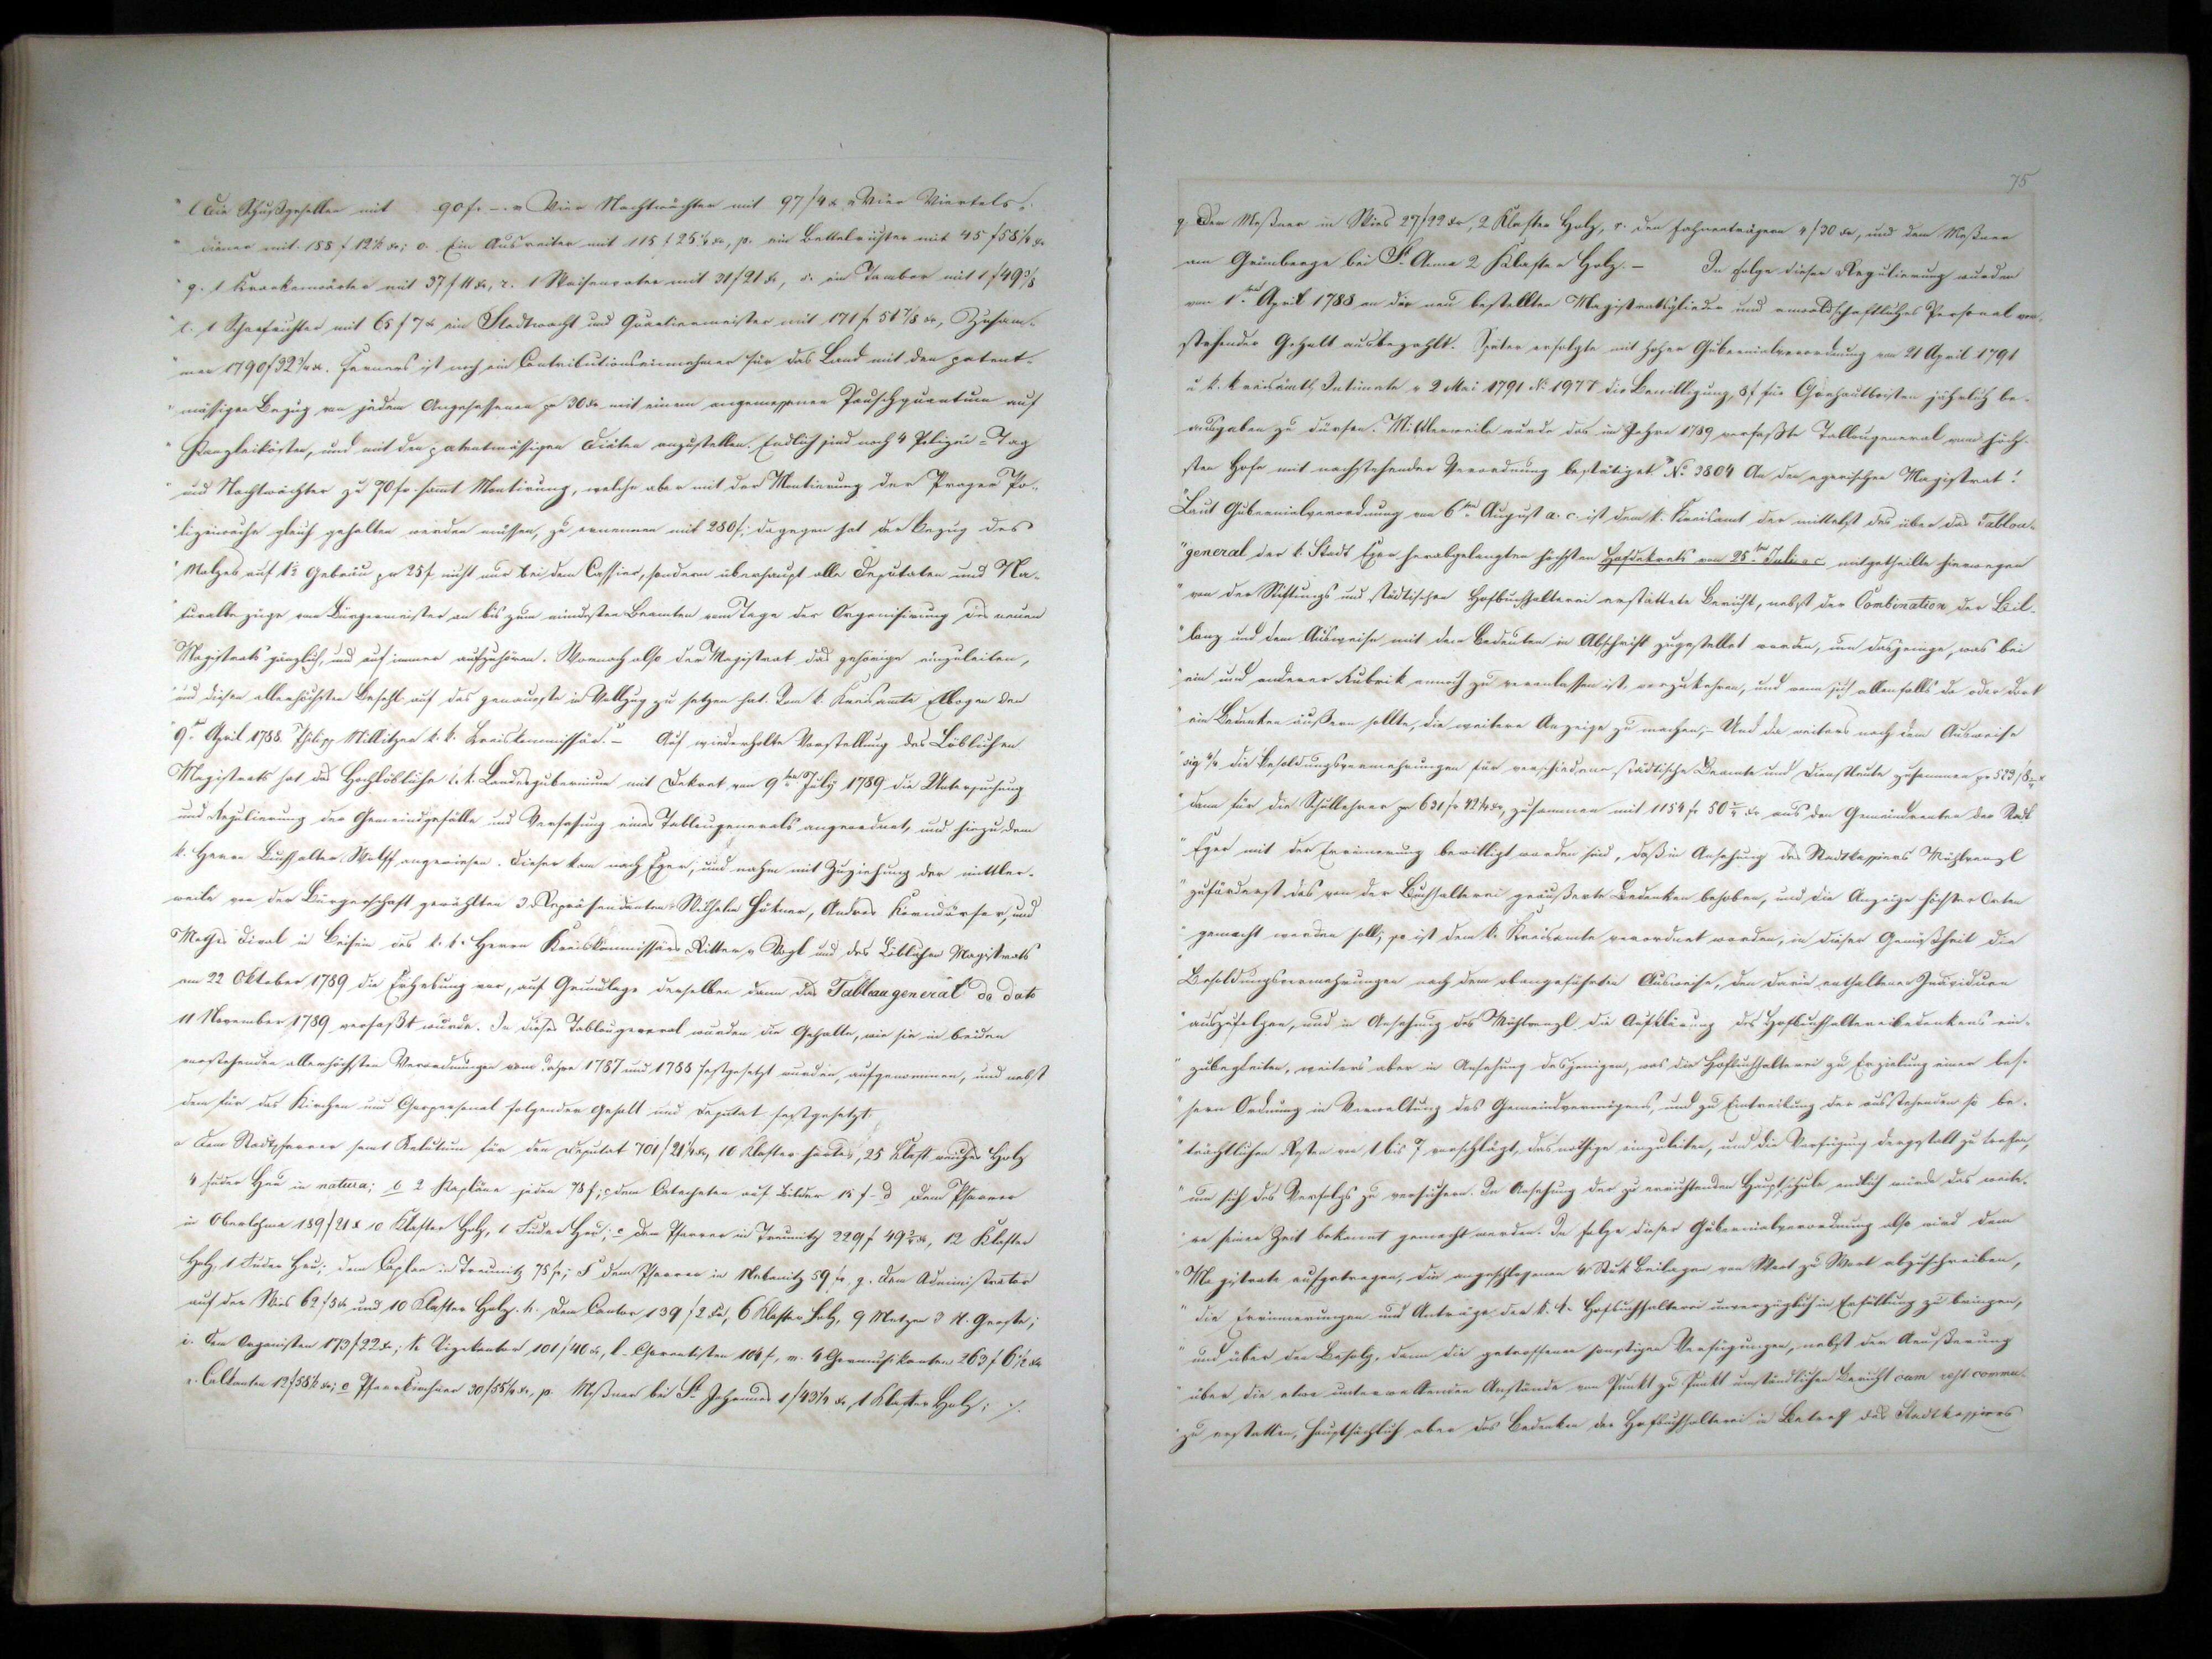 "l die Schußgesellen mit 90 fr. –. m Vier Nachtwächter mit 97/4 x n Vier Viertels-
" diener mit 188 f 12½ xr; o. Ein Ausreiter mit 115 f 25¼ xr, p. ein Bettelrichter mit 45 f 58¼ xr
" q. 1 Krankenwärter mit 37 f 11 xr, r. 1 Waisenvater mit 31/21 xr, s. ein Tambor mit 1 f 49⅜
" t. 1 Scharfrichter mit 65 f 7 x ein Stadtwacht und Quartiermeister mit 171 fr 51⅞ xr, Zusam-
" men 1790 f 32¾ x. Ferners ist noch ein Contributionseinnehmer für das Land mit den patent-
" mässigen Bezug von jedem Angesessenen pr 30 xr mit einem angemessenen Pauschquantum auf
" Kanzleikösten, und mit den patentmässigen Diäten anzustellen. Endlich sind noch 4 Polizei-Tag
" und Nachtwächter zu 70 fr. samt Montirung, welche aber mit der Montierung der Prager Po-
" lizeiwache gleich gehalten werden müssen, zu ernennen mit 280 f; dagegen hat der Bezug des
" Malzes auf 1½ Gebräu pr 25 f nicht nur bei dem Cassier, sondern überhaupt alle Deputaten und Na-
" turalbezüge vom Bürgermeister an bis zum mindesten Beamten vom Tage der Organisirung des neuen
" Magistrats gänzlich, und auf immer aufzuhören. Wornach also der Magistrat das gehörige einzuleiten,
" und diesen allerhöchsten Befehl auf das genaueste in Vollzug zu setzen hat. Vom k. Kreisamte Elbogen den
" 9ten April 1788. Philipp Millitzer k. k. Kreiskommissär." – Auf wiederholte Vorstellung des Löblichen
Magistrats hat das Hochlöbliche k. k. Landesgubernium mit Dekret vom 9ten July 1789 die Untersuchung
und Regulierung der Gemeindgefälle und Verfassung eines Tableugenerals angeordnet, und hiezu dem
k. Herrn Buchhalter Wolff angewiesen. Dieser kam nach Eger, und nahm mit Zuziehung der mittler-
weile von der Bürgerschaft gewählten 3 Repräsendanten Wilhelm Hübner, Andres und
Mathes in Beisein des k. k. Herrn Kreiskommissärs Ritter v Vogl und des Löblichen Magistrats
am 22 Oktober 1789 die Erhebung vor, auf Grundlage derselben dann das Tableaugeneral de dato
11 November 1789 verfaßt wurde. In dieses Tableugeneral wurden die Gehalte, wie sie in beiden
vorstehenden allerhöchsten Verordnungen vom Jahre 1787 und 1788 festgesetzt wurden, aufgenommen, und nebst
dem für das Kirchen und Chorpersonal folgender Gehalt und Deputat festgesetzt.
a dem Stadtpfarrer samt Relutum für den Deputat 701/21¼ xr, 10 Klafter hartes, 25 Klaft weiches Holz
4 Fuder Heu in natura; b 2 Kapläne jeden 78 f; c dem Catecheten auf Bilder 15 f – d dem Pfarrer
in Oberlohma 189/21 x 10 Klafter Holz, 1 Fuder Heu; e dem Pfarrer in Treunitz 229 f 49¾ xr, 12 Klafter
Holz, 1 Fuder Heu; dem Caplan in Treunitz 75 fr; f dem Pfarrer in Nebanitz 59 fr. g. dem Administrator
auf der Wies 62 f 3 xr und 10 Klafter Holz. h. dem Cantor 139 f 2 xr, 6 Klafter Holz, 9 Metzen 3 V. Gerste;
i. dem Organisten 173/22 xr; k Vizekantor 101/40 x, l. Choralisten 104 f, m. 4 Chormusikanten 263 f 6½ xr
n. Calkanten 12/58½ xr; o Pfarrkirchner 30/55¼ xr, p. Meßner bei St. Johannes 1/43¼ xr, 1 Klafter Holz; ./.
75
q. Dem Meßner in Wies 27/22 xr, 2 Klafter Holz, r. den Fahnenträgern 4/30 xr, und dem Meßner
am Grünberge bei St. Anna 2 Klafter Holz. – In Folge dieser Regulierung wurden
vom 1ten April 1788 an die neu bestellten Magistratsglieder und anwaldschaftliches Personal vor-
stehender Gehalt ausbezahlt. Später erfolgte mit hoher Gubernialverordnung vom 21 April 1791
u. k. kreisämtl. Intimate v 2 Mai 1791 N: 1977 die Bewilligung, 8 f für jährlich be-
ausgaben zu dürfen. Mittlerweile wurde das im Jahre 1789 verfaßte Tableugeneral vom höch-
sten Hofe mit nachstehender Verordnung bestätiget: "No. 3804 An den egerischen Magistrat!
"Laut Gubernialverordnung vom 6ten August a. c. ist dem k. Kreisamt der mittelst des über das Tableau-
" general der k. Stadt Eger herabgelangten höchsten Hofdekrets vom 25ten Juli a c mitgetheilte hierwegen
" von der Stiftungs und städtischen Hofbuchhalterei erstattete Bericht, nebst der Combination der Bil-
" lanz und dem Ausweise mit dem Bedeuten in Abschrift zugestellet worden, um dasjenige, was bei
" ein und anderer Rubrik annoch zu veranlassen ist, vorzukehren, und wenn sich allenfalls da oder dort
" ein Bedenken äußern sollte, die weitere Anzeige zu machen. – Und da weiters nach dem Ausweise
" sig % die Besoldungsvermehrungen für verschiedene städtische Beamte und Dienstleute zusammen pr 523/8 x
" dann für die Schullehrer pr 631 fr 42¼ xr, zusammen mit 1154 fr 50 ¼ xr aus den Gemeindrenten der Stadt
" Eger mit der Erinnerung bewilligt worden sind, daß in Ansehung des Stadtkassiers Mühlvenzl
" zuförderst das von der Buchhalterei geäußerte Bedenken behoben, und die Anzeige höchster Orten
" gemacht werden soll; so ist dem k. Kreisamte verordnet worden, in dieser Gemäßheit die
" Besoldungsvermehrungen nach dem obangeführten Ausweise, den darin enthaltenen Individuen
" auszufolgen, und in Ansehung des Mühlvenzl die Aufklärung des Hofbuchhaltereibedenkens ein-
" zubegleiten, weiters aber in Ansehung desjenigen, was die Hofbuchhalterei zu Erzielung einer bes-
" sern Ordnung in Verwaltung des Gemeindvermögens, und zu Eintreibung der ausstehenden so be-
" trächtlichen Resten von 1 bis 7 vorschlägt, das nöthige einzuleiten, und die Verfügung dergestalt zu treffen,
" um sich des Verfolgs zu versichern. In Ansehung der zu errichtenden Hauptschule endlich würde das weite-
" re seiner Zeit bekannt gemacht werden. In Folge dieser Gubernialverordnung also wird dem
" Magistrate aufgetragen, die angeschlossenen 4 Stük Beilagen von Wort zu Wort abzuschreiben,
" die Erinnerungen und Anträge der k. k. Hofbuchhalterei unverzüglich in Erfüllung zu bringen,
" und über den Befolg, dann die getroffenen sonstigen Verfügungen, nebst der Aeußerung
" über die etwa unterwaltenden Anstände von Punkt zu Punkt umständlichen Bericht cum
" zu erstatten, hauptsächlich aber das Bedenken der Hofbuchhalterei in Betreff des Stadtkassiers